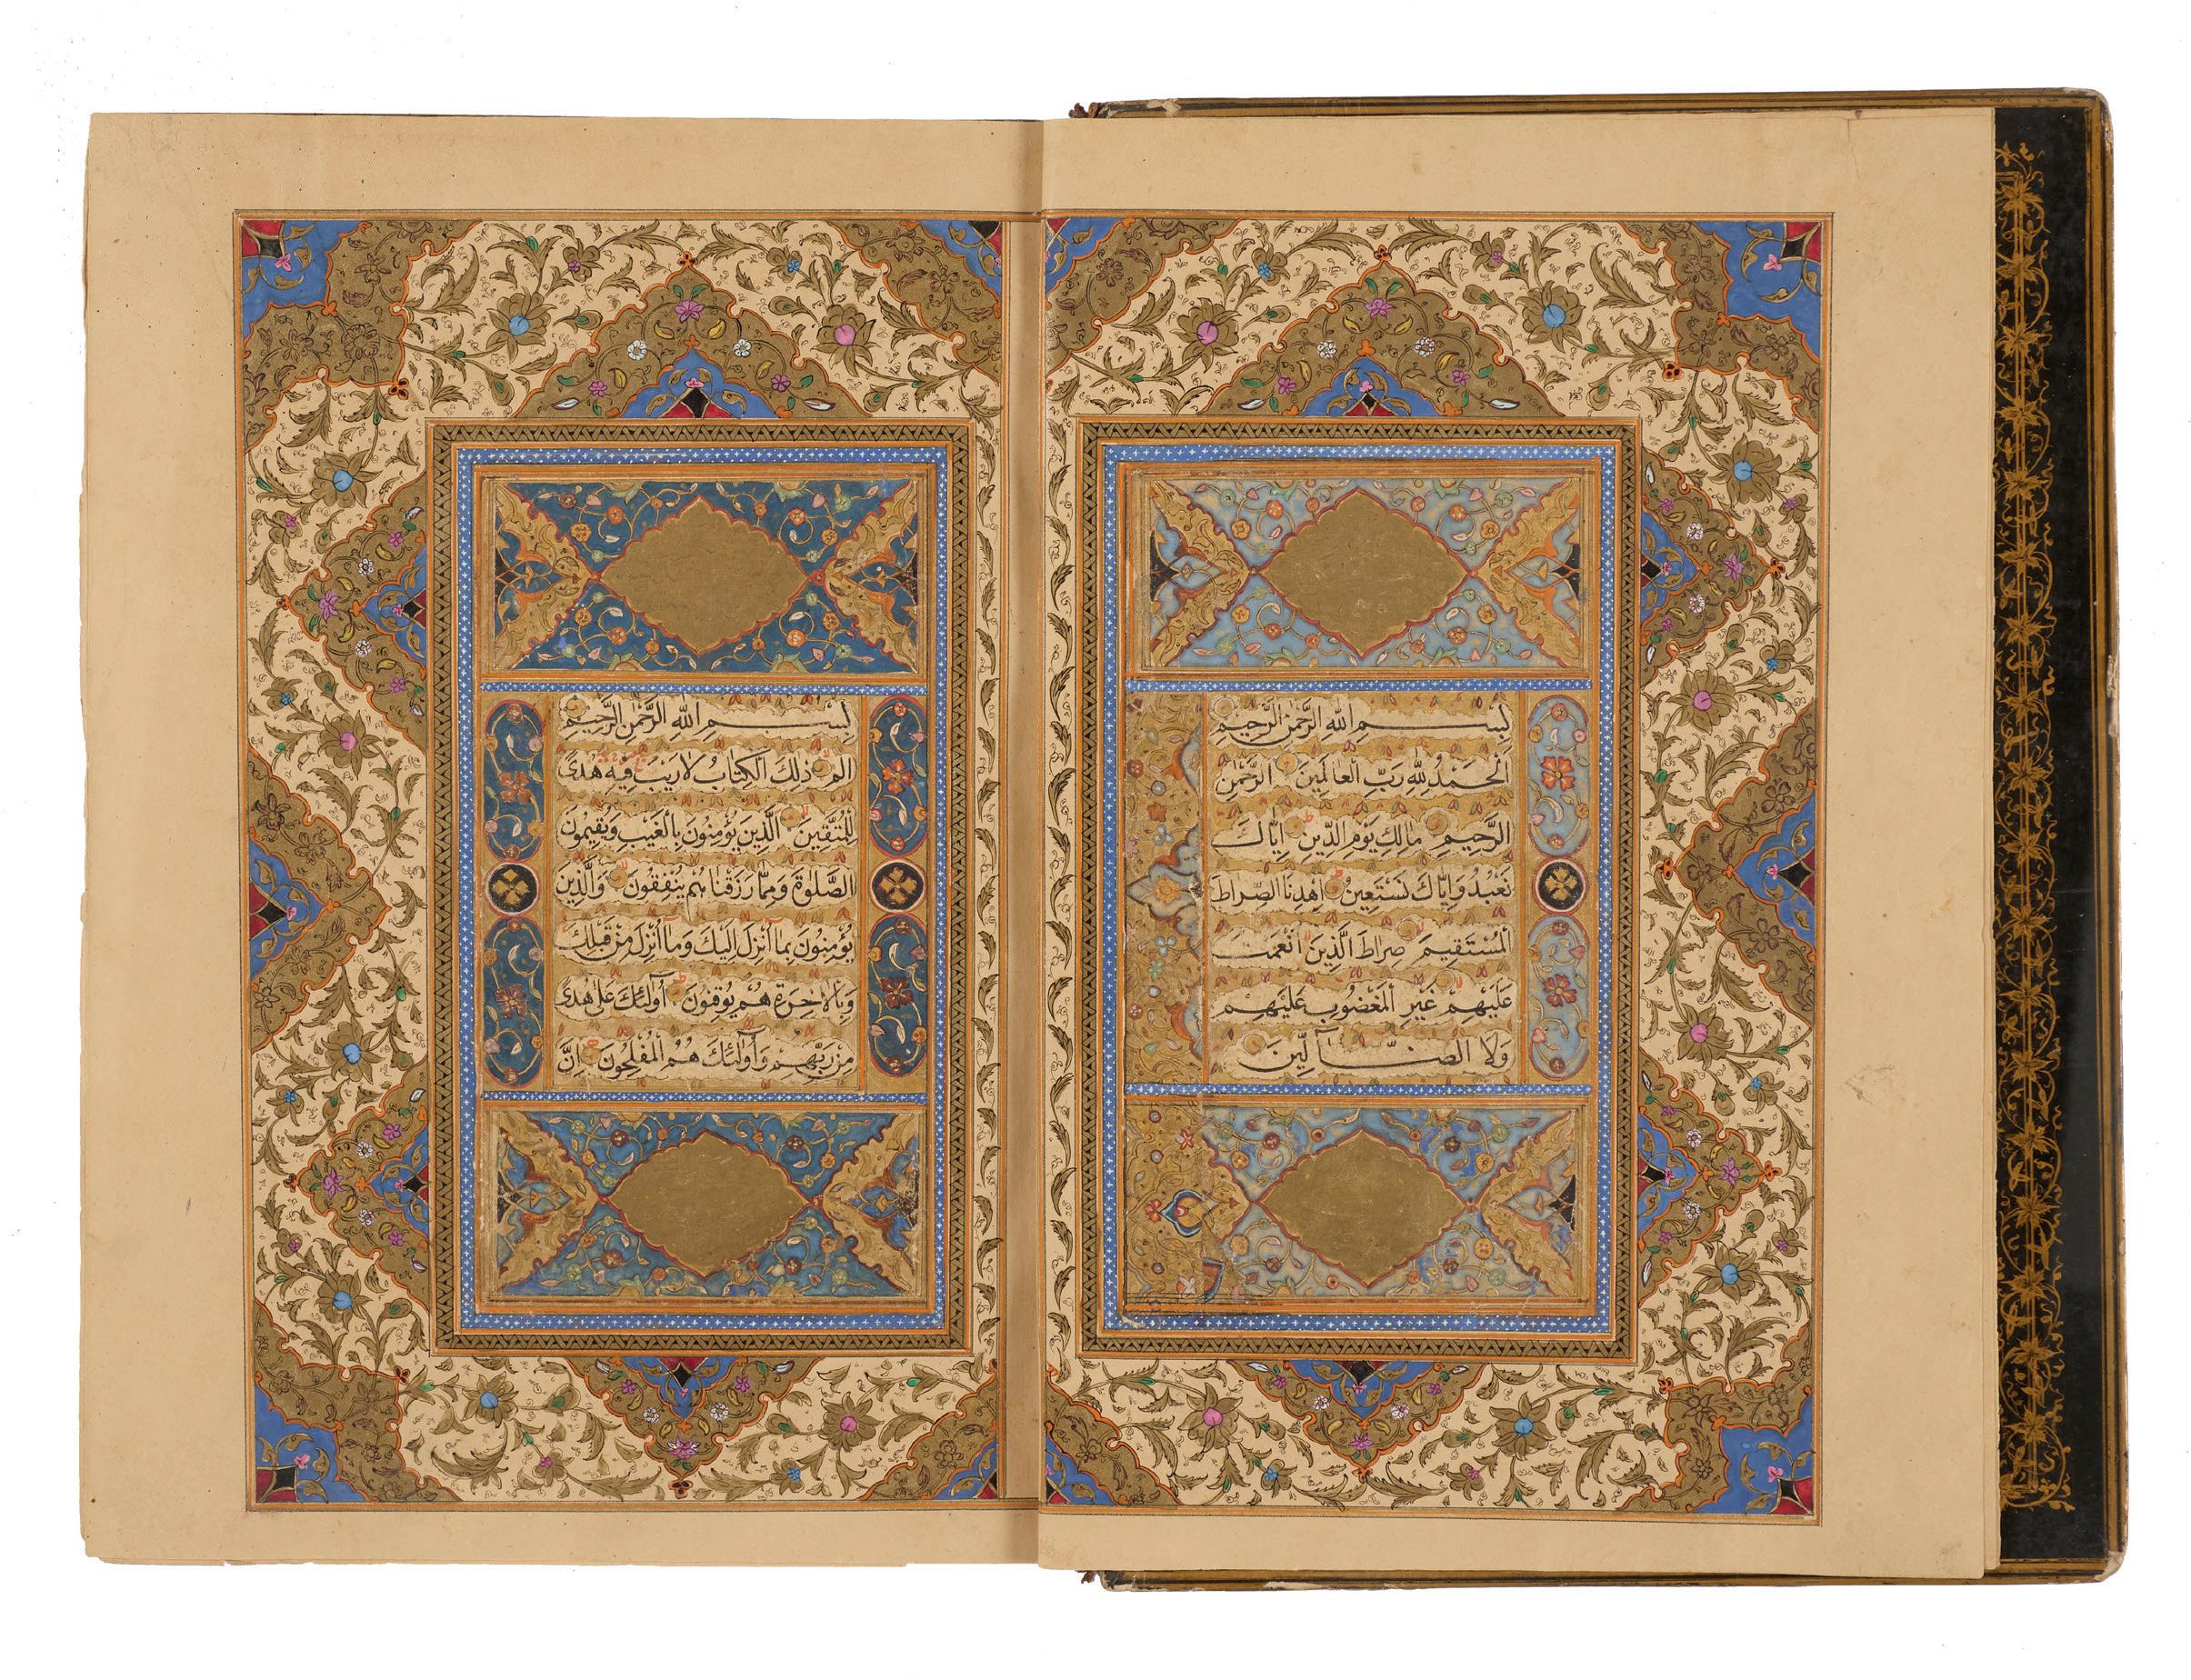 بِسْمِ اللهِ الرَّحْمٰنِ الرَّحِيْمِ
اَلْحَمْدُ لِلّٰهِ رَبِّ الْعَالَمِينَ الرَّحْمٰنِ
الرَّحِيمِ مَالِكِ يَوْمِ الدِّينِ اِيَّاكَ
نَعْبُدُ وَاِيَّاكَ نَسْتَعِينُ اِهْدِنَا الصِّرَاطَ
الْمُسْتَقِيمَ صِرَاطَ الَّذِينَ اَنْعَمْتَ
عَلَيْهِمْ غَيْرِ الْمَغْضُوبِ عَلَيْهِمْ
وَلَا الضَّآلِّينَ
بِسْمِ اللهِ الرَّحْمٰنِ الرَّحِيْمِ
الم ذٰلِكَ الْكِتَابُ لَا رَيْبَ فِيهِ هُدًى
لِلْمُتَّقِينَ اَلَّذِينَ يُؤْمِنُونَ بِالْغَيْبِ وَيُقِيمُونَ
الصَّلٰوةَ وَمِمَّا رَزَقْنَاهُمْ يُنْفِقُونَ وَالَّذِينَ
يُؤْمِنُونَ بِمَا اُنْزِلَ اِلَيْكَ وَمَا اُنْزِلَ مِنْ قَبْلِكَ
وَبِالْاٰخِرَةِ هُمْ يُوقِنُونَ اُولٰئِكَ عَلٰى هُدًى
مِنْ رَبِّهِمْ وَاُولٰئِكَ هُمُ الْمُفْلِحُونَ اِنَّ